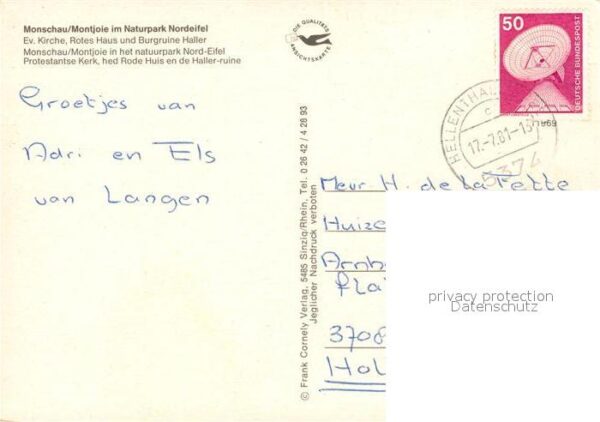 Monschau/Montjoie im Naturpark Nordeifel
Ev. Kirche, Rotes Haus und Burgruine Haller
Monschau/Montjoie in het natuurpark Nord-Eifel
Protestantse Kerk, hed Rode Huis en de Haller-ruine
DIE QUALITÄTS
ANSICHTSKARTE
50
DEUTSCHE BUNDESPOST
HELLENTHAL
c
17.-7.81-13
5374
Groetjes van
Adri en Els
van Langen
© Frank Cornely Verlag, 5485 Sinzig/Rhein, Tel. 0 26 42 / 4 26 93
Jeglicher Nachdruck verboten
Mevr. H. de la Fette
Huize
Arnh
fla
3708
Hol
privacy protection
Datenschutz